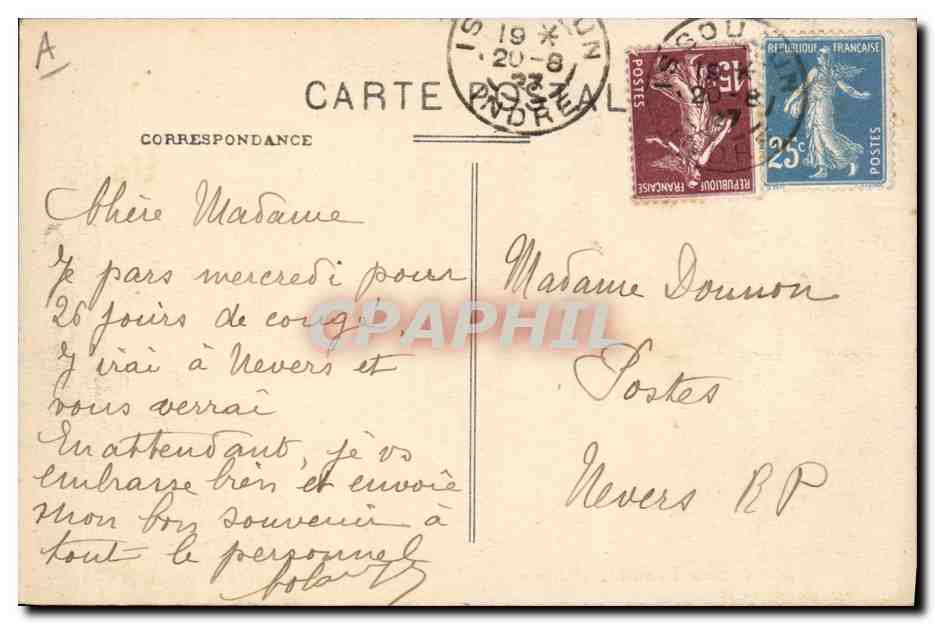 A
19 *
20-8
27
INDRE
CARTE POSTALE
CORRESPONDANCE
15
POSTES
REPUBLIQUE FRANÇAISE
REPUBLIQUE FRANÇAISE
25c
POSTES
Chère Madame
Je pars mercredi pour
26 jours de congé.
J'irai à Nevers et
vous verrai
En attendant, je vs
embrasse bien et envoie
mon bon souvenir à
tout le personnel
Madame Dounon
Postes
Nevers RP
CPAPHIL